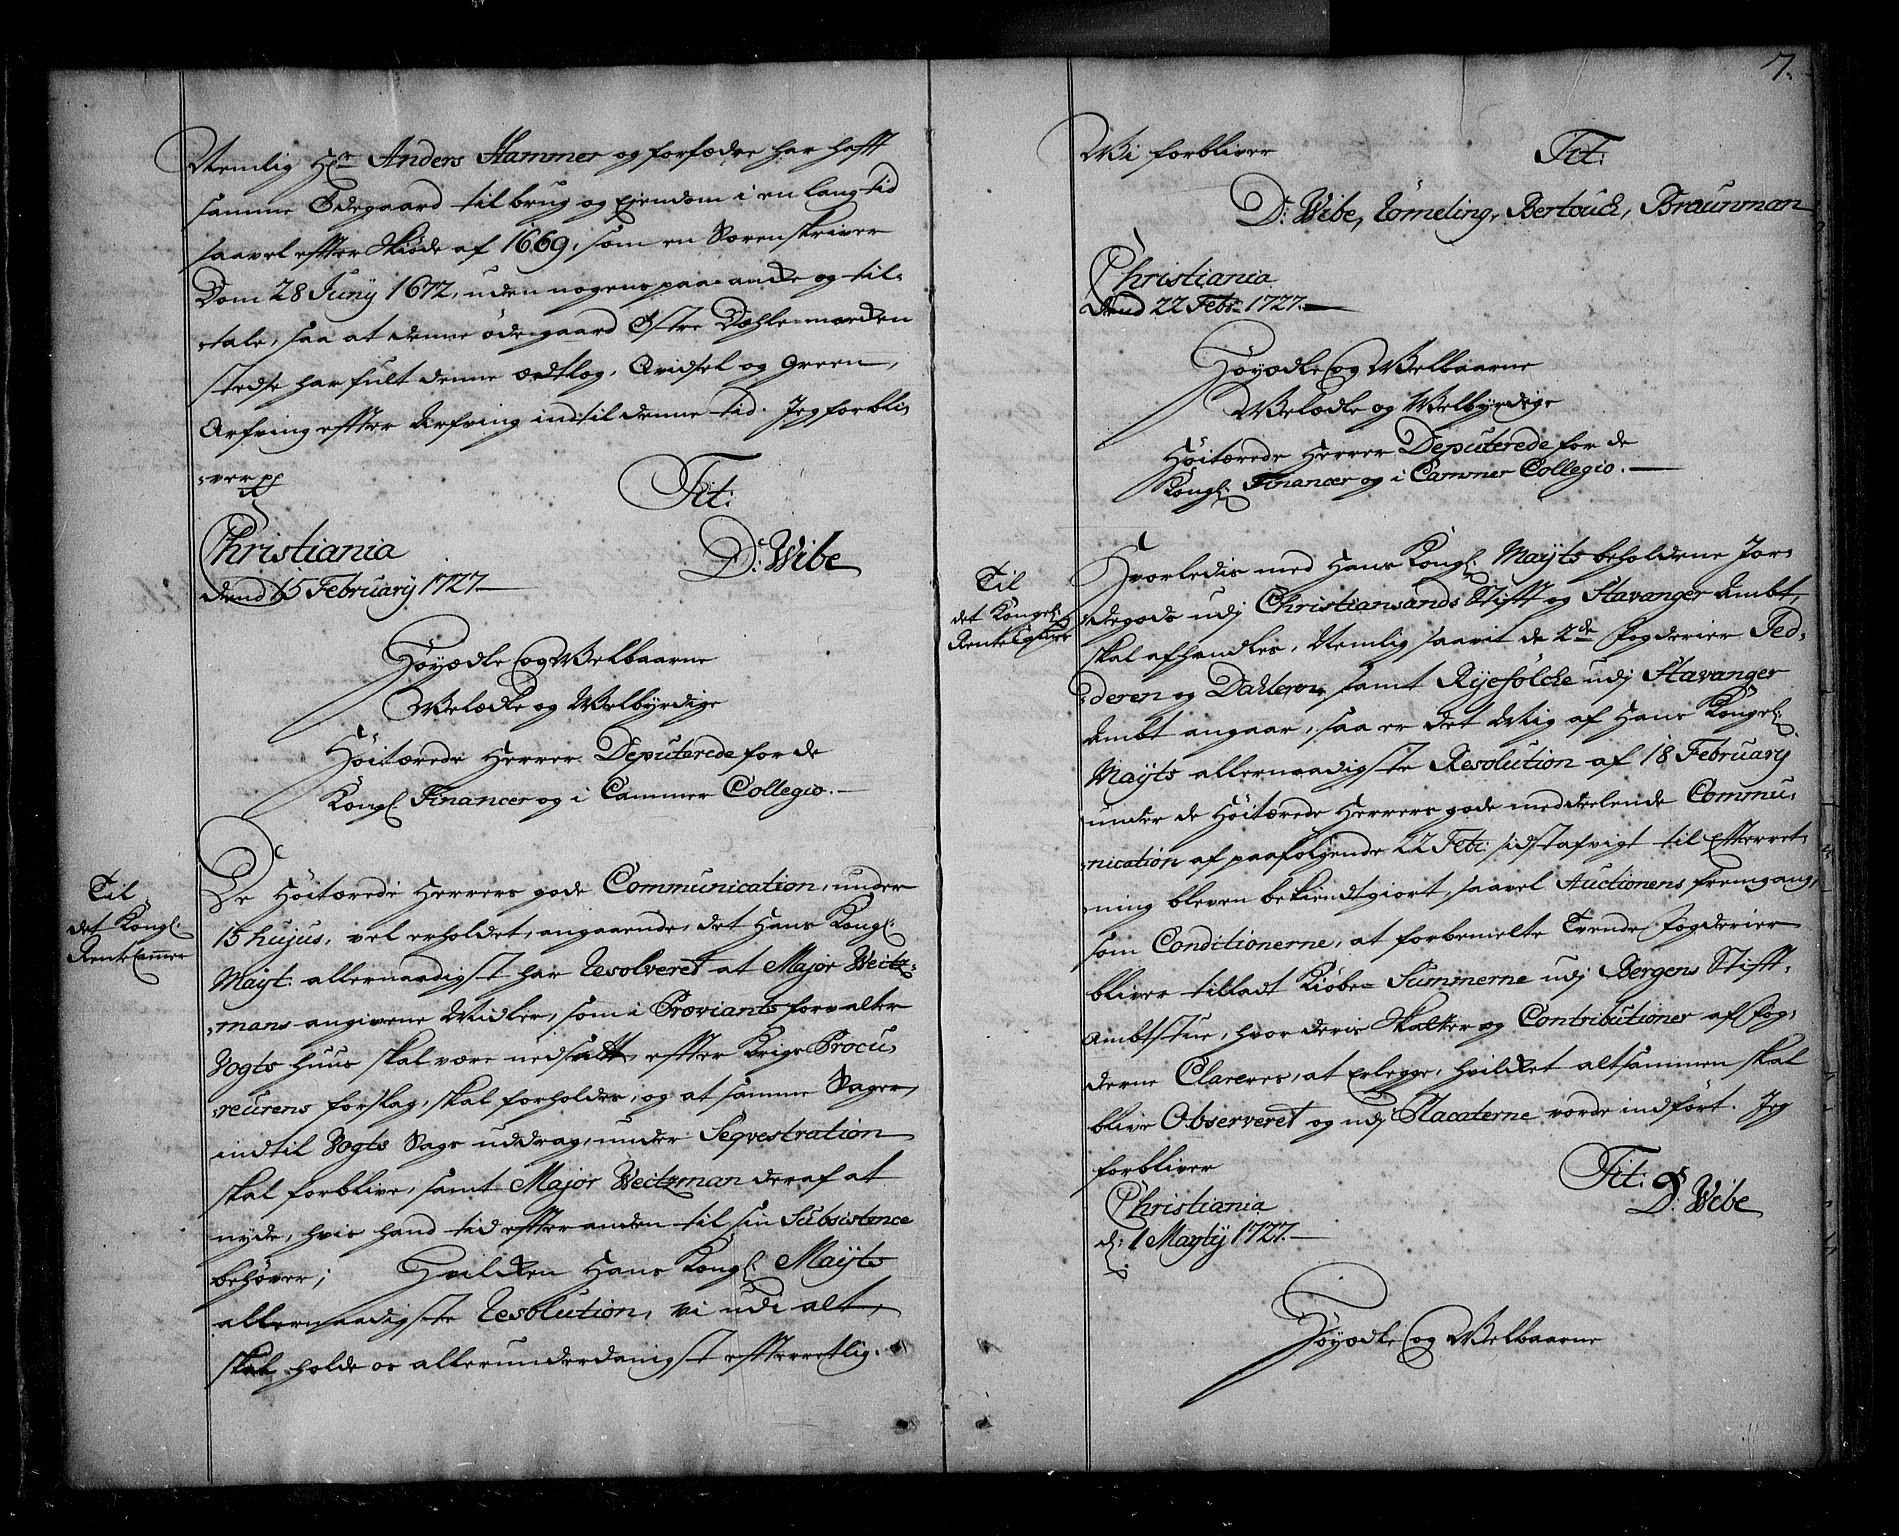 Nemlig Hr Anders Hammer og forfædre har hafft
samme Ødegaard til brug og Ejendom i en lang tid
saavel effter Skiøde af 1669, som en Sorenskriver
Dom 28 Junÿ 1672, uden nogens paaancke og til-
tale, saa at denne ødegaard Østre Dæhlemarcken
stedse har fult denne ætlog, Qvidsel og Green,
Arfving effter Arfving indtil denne tid. Jeg forbli-
ver pp
Tit:
D: Wibe
Christiania
dend 15 February 1727.
Høyædle og Velbaarne
Velædle og Velbyrdige
Høitærede Herrer Deputerede for de
Kongl. Financer og i Cammer Collegio.
Til
det Kongl.
RenteCammer
De Høitærede Herrers gode Communication, under
15 hujus, vel erholdet, angaaende, det Hans Kongl.
Mayt: allernaadigst har Resolveret at Major Weitz-
mans angivene Midler, som i Proviantsforvalter
Vogts huus skal være nedsatt, effter Krigs Procu-
reurens forslag, skal forholdes, og at samme Sager,
indtil Vogts Sags uddrag, under Seqvestration
skal forblive, samt Major Weitzman deraf at
nyde, hvis hand tid effter anden til sin Subsistence
behøver; Hvilcken Hans Kongl. Mayts
allernaadigste Resolution, vi udi alt,
skal holde os allerunderdanigst effterretlig.
7.
Vi forbliver
Tit:
D: Wibe, Tømeling, Bertouch, Braunman
Christiania
dend 22 Febr: 1727.
Høyædle og Velbaarne
Velædle og Velbyrdige
Høitærede Herrer Deputerede for de
Kongl. Financer og i Cammer Collegio.
Til
det Kongel.
RenteCammer
Hvorledis med Hans Kongl. Mayts beholdene Jor-
degods udj Christiansands Stifft og Stavanger Ambt,
skal afhandles, Nemlig saavit de 2de Fogderier Jed-
deren og Dahlerne, samt Ryefølcke udj Stavanger
Ambt angaar, saa er det Mig af Hans Kongel.
Mayts allernaadigste Resolution af 18 February
under de Høitærede Herrers gode meddeelende Commu-
nication af paafølgende 22 Feb: sidst afvigt til Efterret-
ning bleven bekiendtgiort, saavel Auctionens fremgang,
som Conditionerne, at forbemelte Tvende Fogderier
bliver tilladt Kiøbe-Summerne udj Bergens Stifft-
Ambtstue, hvor deris Skatter og Contributioner af Fog-
derne Clareres, at Erlegge, hvilcket altsammen skal
blive Observeret og udj Placaterne vorde indført. Jeg
forbliver
Tit:
D: Wibe
Christiania
d: 1 Martÿ 1727.
Høyædle og Velbaarne